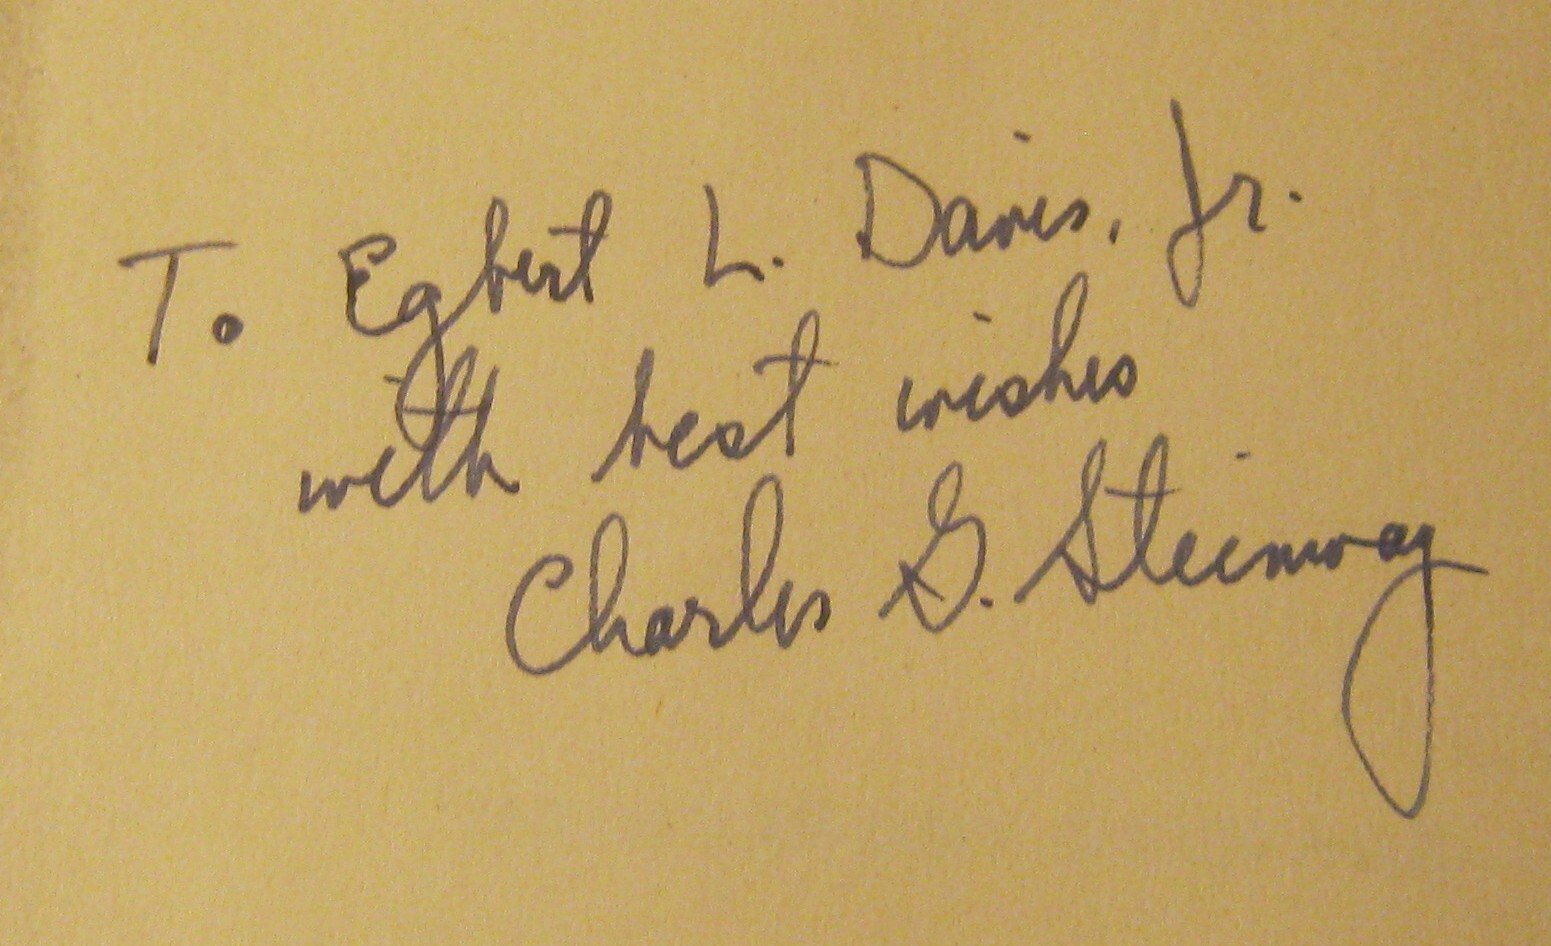 To Egbert L. Davis, Jr.
with best wishes
Charles G. Steinway